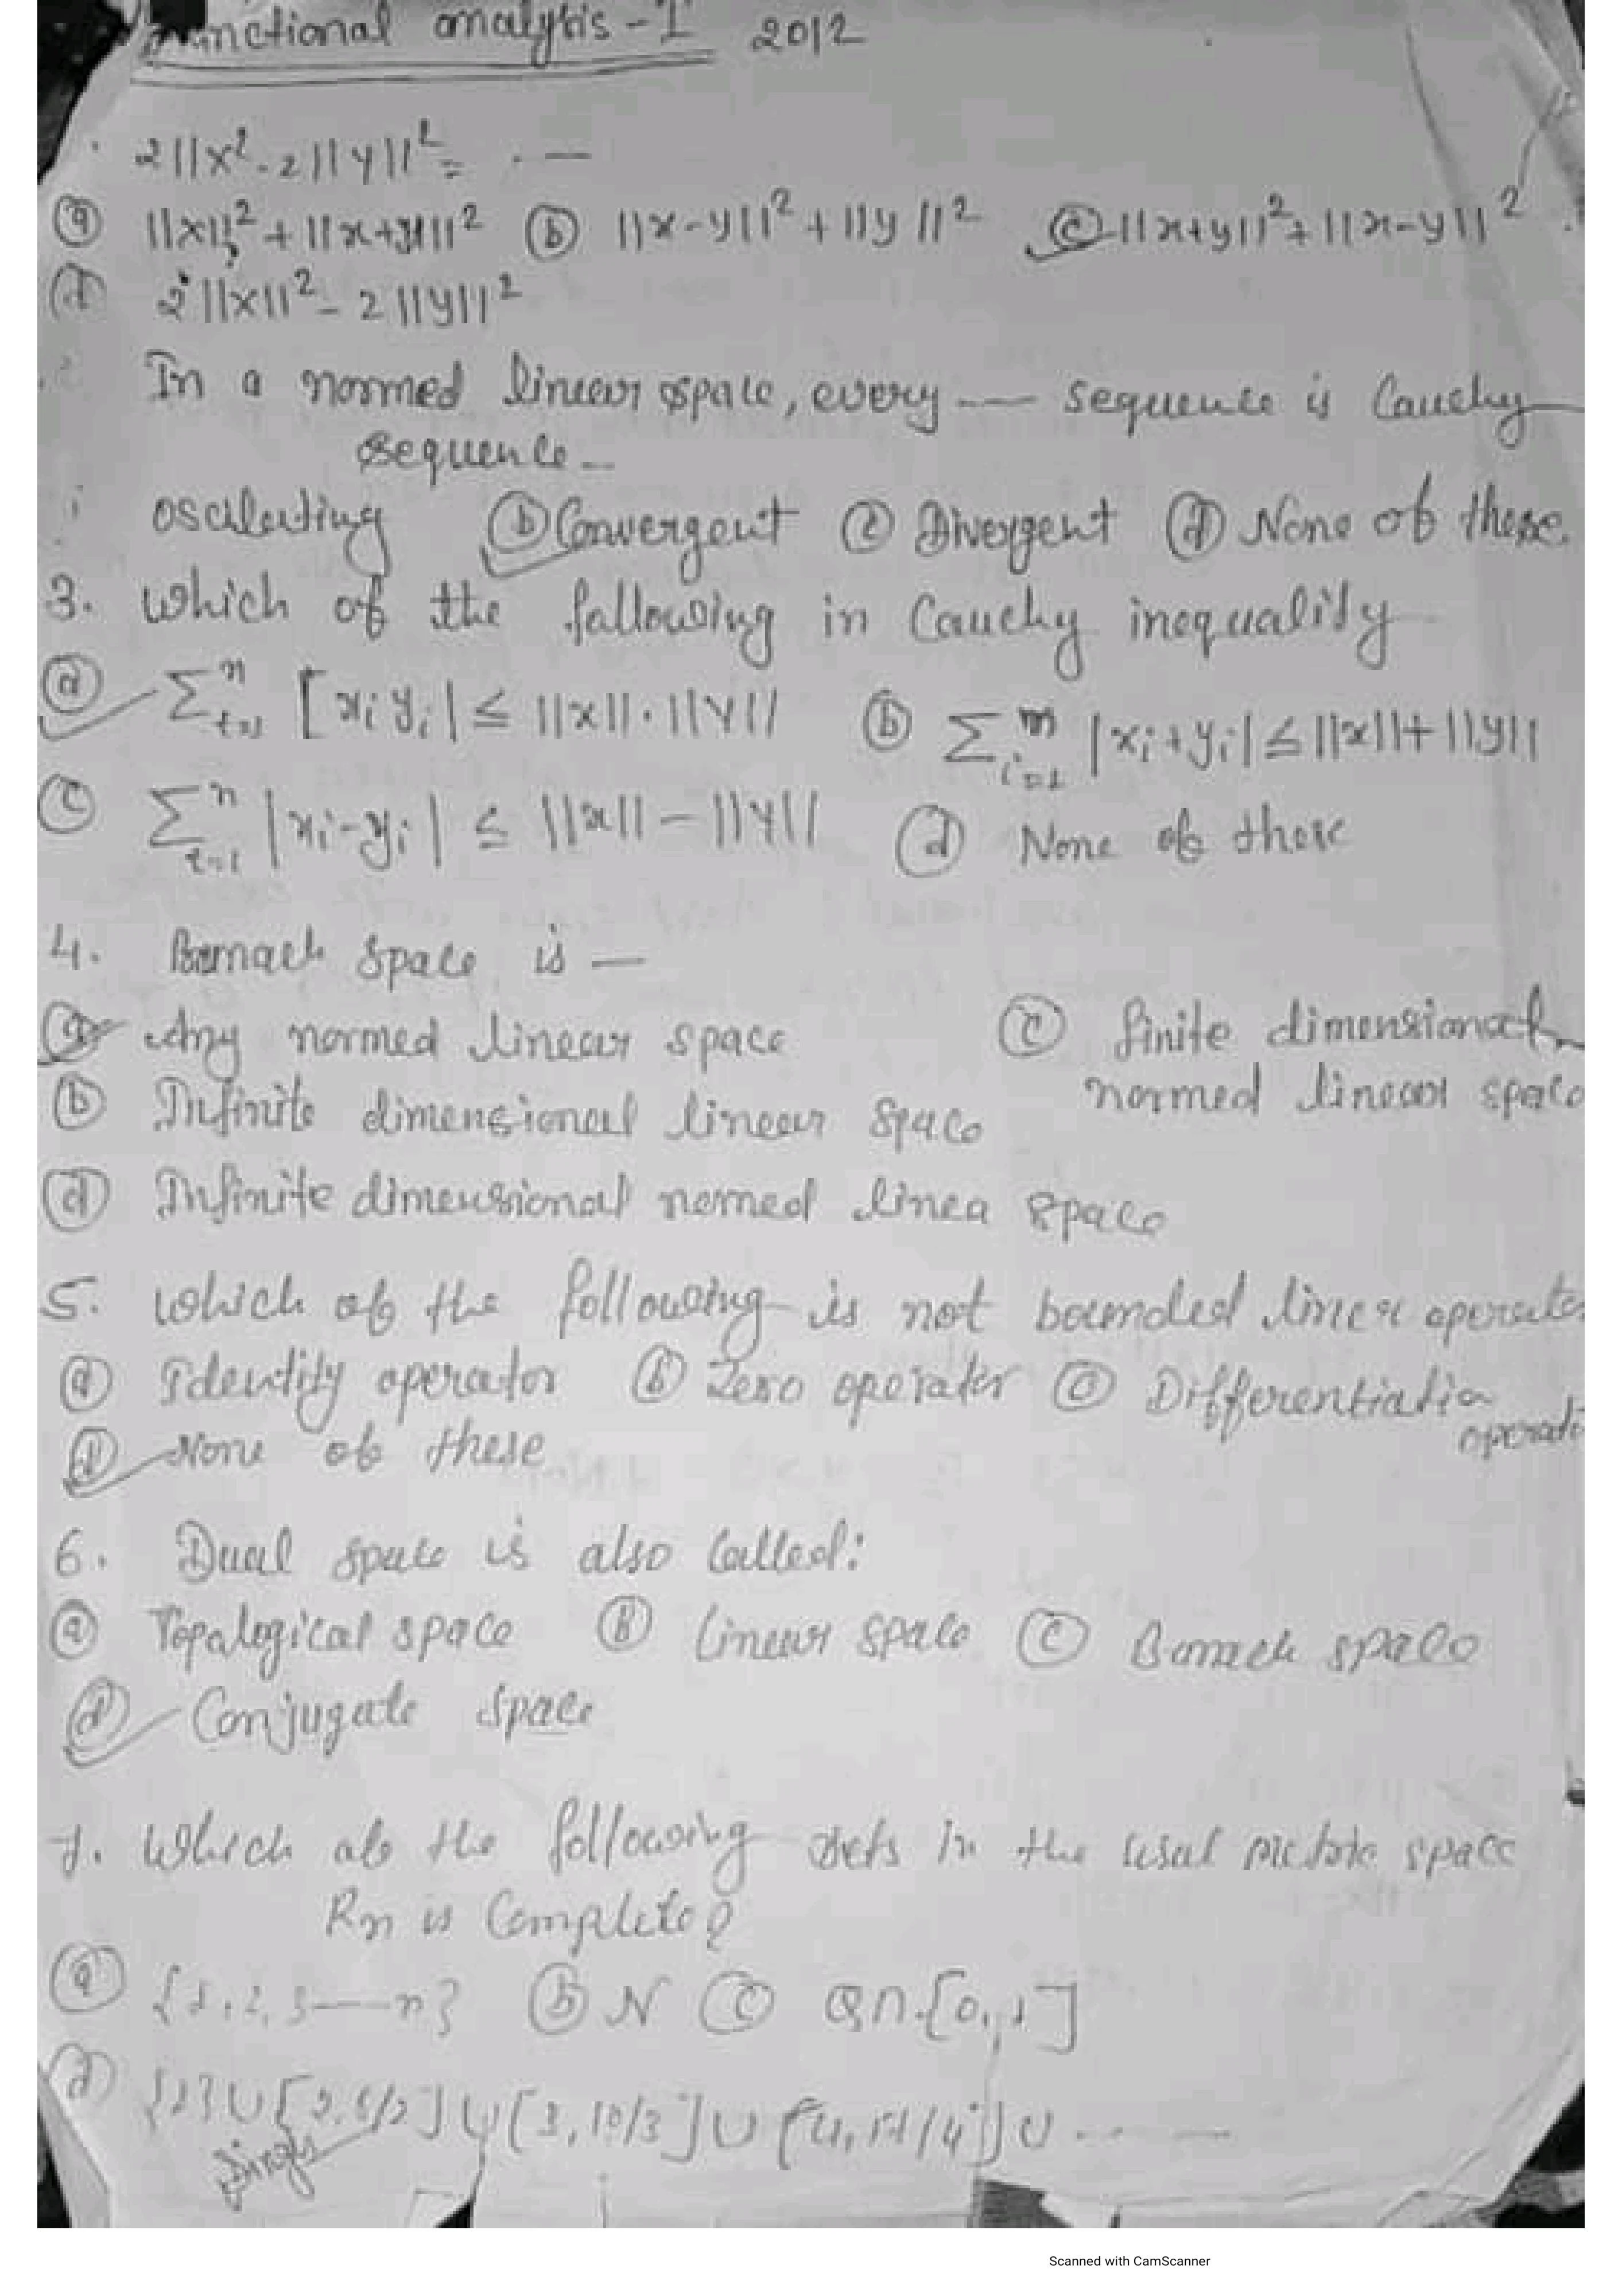 Functional analysis - I 2012
2||x² - 2||y||² = . —
(a) ||x||² + ||x+y||² (b) ||x-y||² + ||y||² (c) ||x+y||² + ||x-y||²
(d) 2||x||² - 2||y||²
In a normed linear space, every — sequence is Cauchy
sequence —
oscilating (b) Convergent (c) Divergent (d) None of these.
3. which of the fallowing in Cauchy inequality
(a) Σⁿ i=1 [xi yi| ≤ ||x||.||y|| (b) Σᵐ i=1 |xi+yi| ≤ ||x||+||y||
(c) Σⁿ i=1 |xi-yi| ≤ ||x|| - ||y|| (d) None of these
4. Banach space is —
(a) Any normed linear space (c) finite dimensional
(b) Infinite dimensional linear space normed linear space
(d) Infinite dimensional nomed linea space
5. which of the following is not bounded linear operator
(a) Identity operator (b) Zero operator (c) Differentiation
operat
(d) None of these
6. Dual space is also Called:
(a) Topalogical space (B) Linear space (c) Banach space
(d) Conjugate space
7. Which of the following sets in the usual metric space
Rn is Complete?
(a) {1, 2, 3 — n} (b) N (c) Q∩[0, 1]
(d) {1} ∪ [2, 5/2] ∪ [3, 10/3] ∪ [4, 17/4] ∪ ... —
Scanned with CamScanner